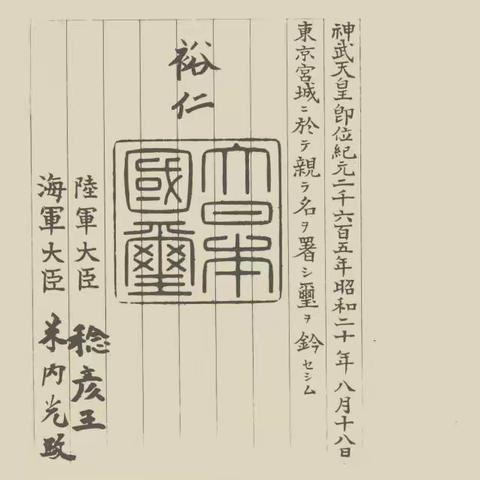 神武天皇即位紀元二千六百五年昭和二十年八月十八日
東京宮城ニ於テ親ラ名ヲ署シ璽ヲ鈐セシム
裕仁
大日本
國璽
陸軍大臣 稔彦王
海軍大臣 米内光政